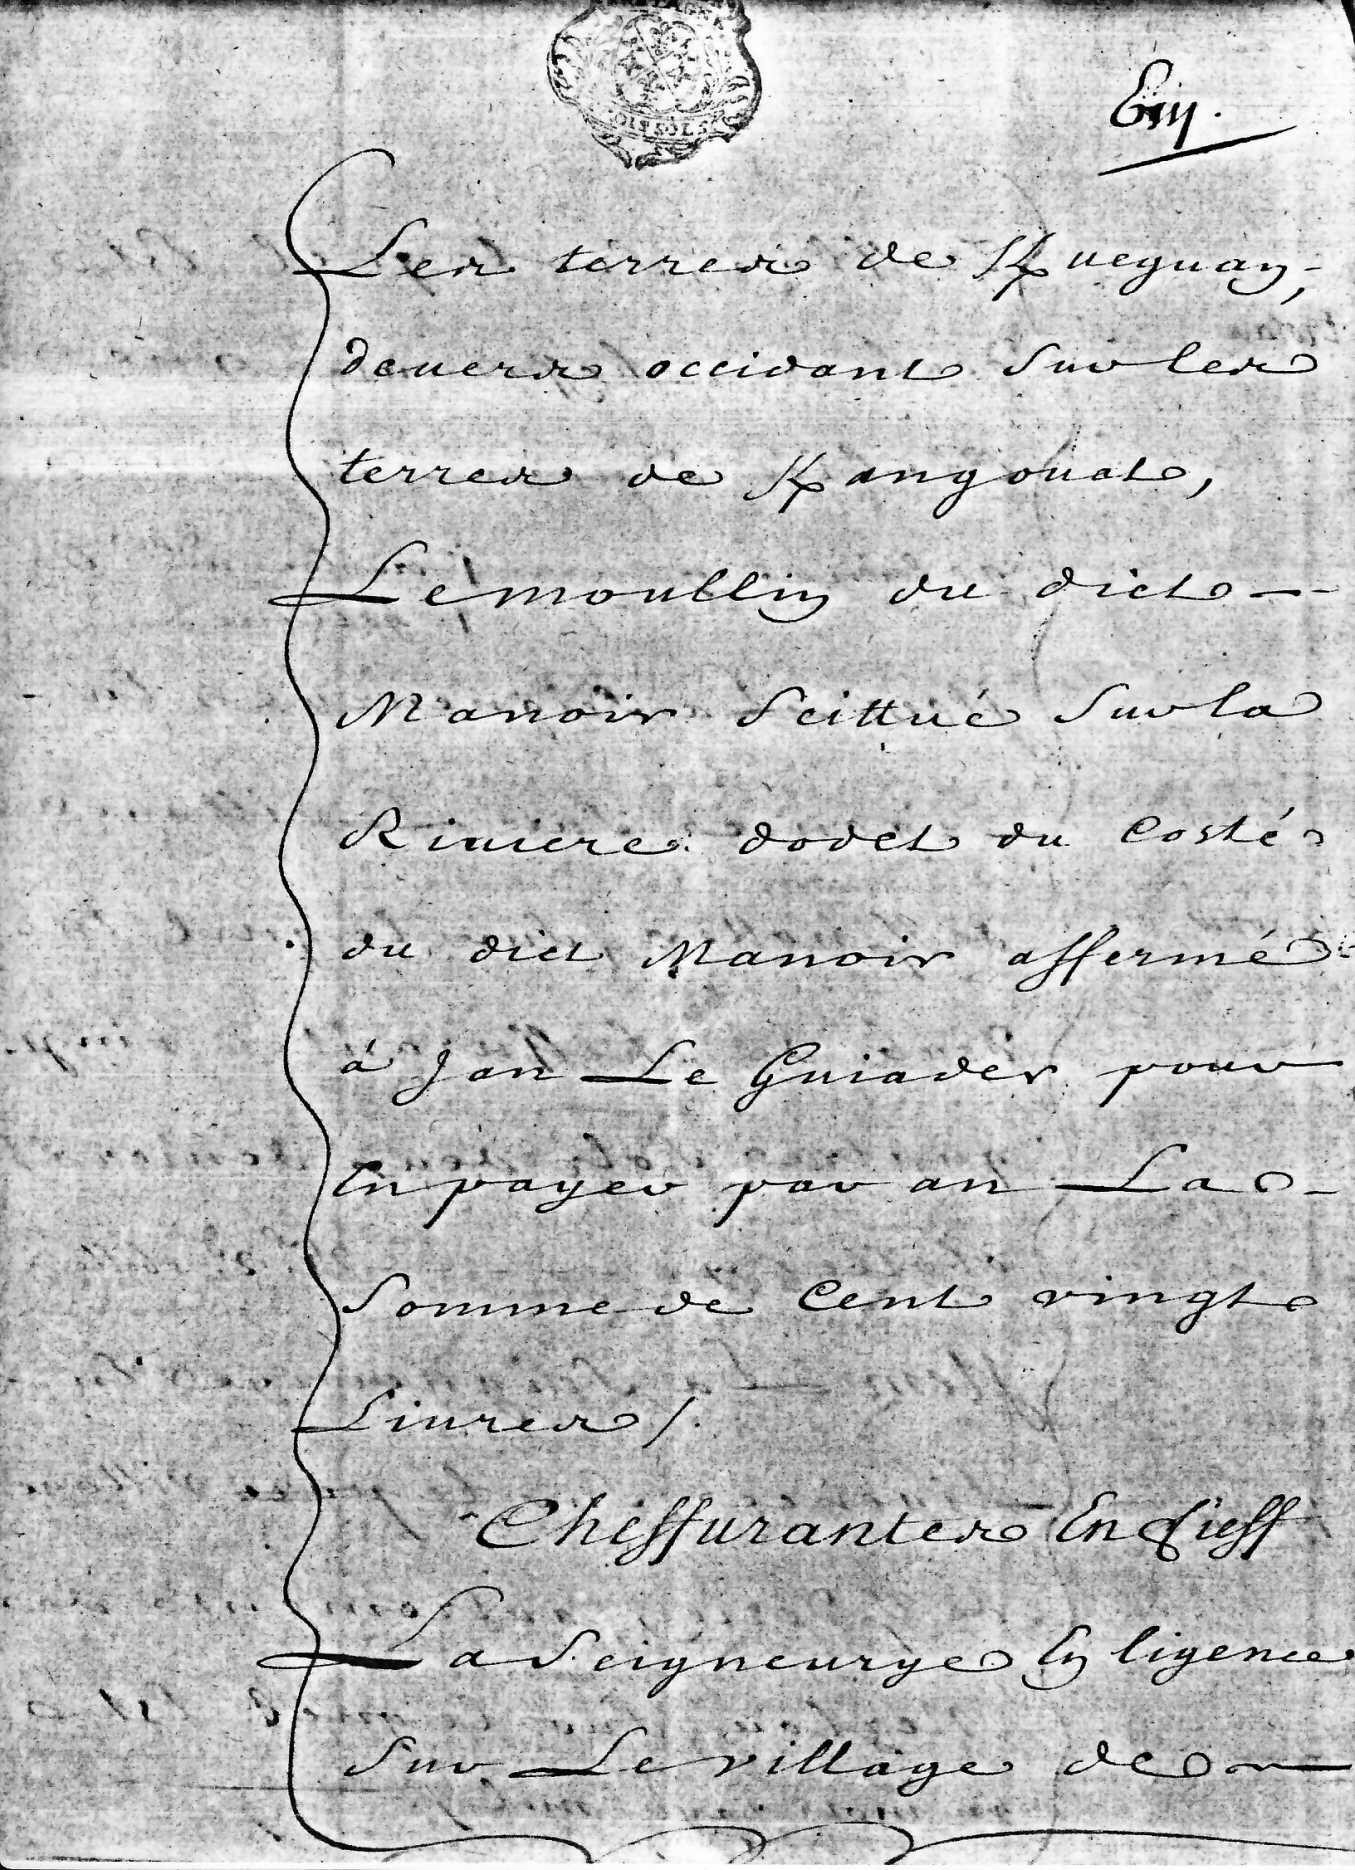 Les terres de Kueguan,
deuers occidant Sur les
terres de Kangouat,
Le moullin du dict
Manoir Scittué Sur la
Riuiere dodet du Costé
du dict Manoir affermé
à Jan Le Guiader pour
En payer par an La
Somme de Cent vingt
Liures /.
Cheffurantes En fieff
La Seigneurye En ligence
Sur Le village de